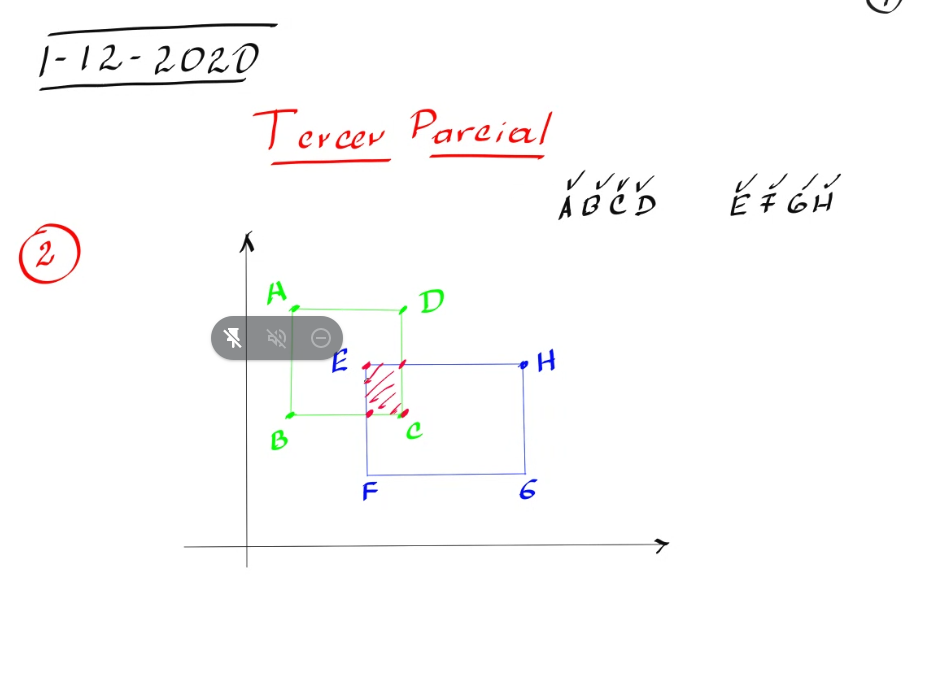 1-12-2020
Tercer Parcial
A B C D E F G H
2
A D
E H
B C
F G